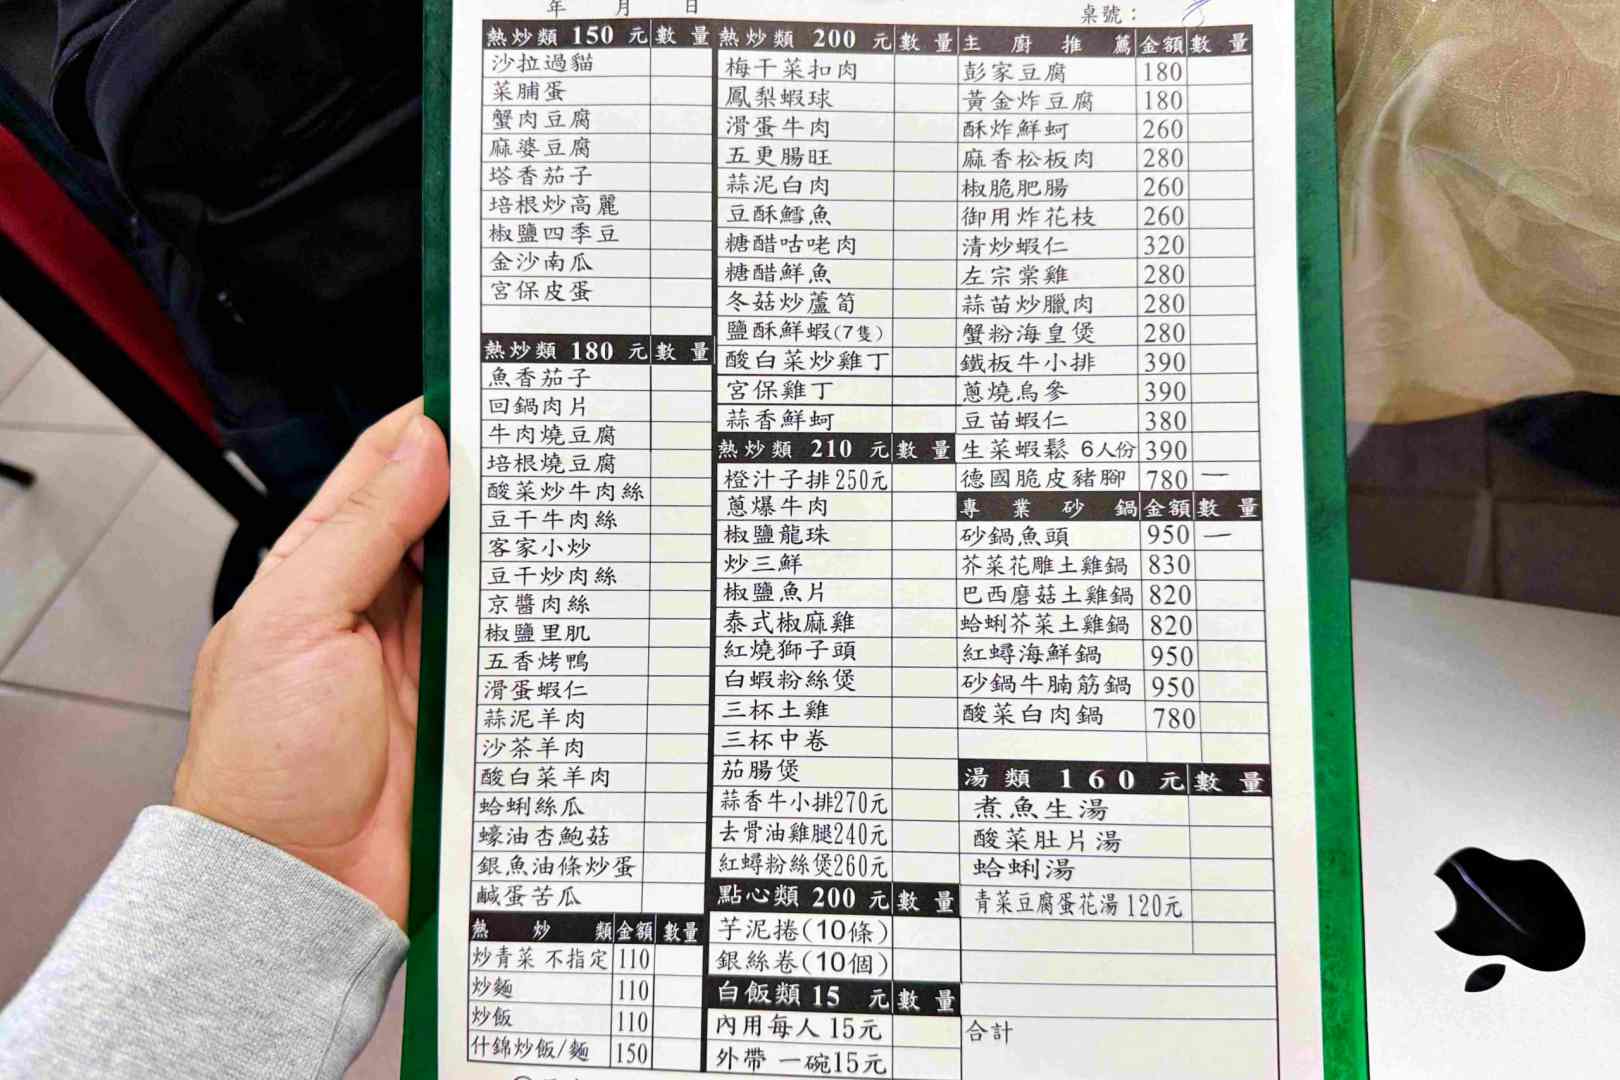 年 月 日
桌號：
熱炒類 150 元 數量
沙拉過貓
菜脯蛋
蟹肉豆腐
麻婆豆腐
塔香茄子
培根炒高麗
椒鹽四季豆
金沙南瓜
宮保皮蛋
熱炒類 180 元 數量
魚香茄子
回鍋肉片
牛肉燒豆腐
培根燒豆腐
酸菜炒牛肉絲
豆干牛肉絲
客家小炒
豆干炒肉絲
京醬肉絲
椒鹽里肌
五香烤鴨
滑蛋蝦仁
蒜泥羊肉
沙茶羊肉
酸白菜羊肉
蛤蜊絲瓜
蠔油杏鮑菇
銀魚油條炒蛋
鹹蛋苦瓜
熱炒類 金額 數量
炒青菜 不指定 110
炒麵 110
炒飯 110
什錦炒飯/麵 150
熱炒類 200 元 數量
梅干菜扣肉
鳳梨蝦球
滑蛋牛肉
五更腸旺
蒜泥白肉
豆酥鱈魚
糖醋咕咾肉
糖醋鮮魚
冬菇炒蘆筍
鹽酥鮮蝦(7隻)
酸白菜炒雞丁
宮保雞丁
蒜香鮮蚵
熱炒類 210 元 數量
橙汁子排250元
蔥爆牛肉
椒鹽龍珠
炒三鮮
椒鹽魚片
泰式椒麻雞
紅燒獅子頭
白蝦粉絲煲
三杯土雞
三杯中卷
茄腸煲
蒜香牛小排270元
去骨油雞腿240元
紅蟳粉絲煲260元
點心類 200 元 數量
芋泥捲(10條)
銀絲卷(10個)
白飯類 15 元 數量
內用每人15元
外帶 一碗15元
主廚推薦 金額 數量
彭家豆腐 180
黃金炸豆腐 180
酥炸鮮蚵 260
麻香松板肉 280
椒脆肥腸 260
御用炸花枝 260
清炒蝦仁 320
左宗棠雞 280
蒜苗炒臘肉 280
蟹粉海皇煲 280
鐵板牛小排 390
蔥燒烏參 390
豆苗蝦仁 380
生菜蝦鬆 6人份 390
德國脆皮豬腳 780 一
專業砂鍋 金額 數量
砂鍋魚頭 950 一
芥菜花雕土雞鍋 830
巴西蘑菇土雞鍋 820
蛤蜊芥菜土雞鍋 820
紅蟳海鮮鍋 950
砂鍋牛腩筋鍋 950
酸菜白肉鍋 780
湯類 160 元 數量
煮魚生湯
酸菜肚片湯
蛤蜊湯
青菜豆腐蛋花湯 120元
合計